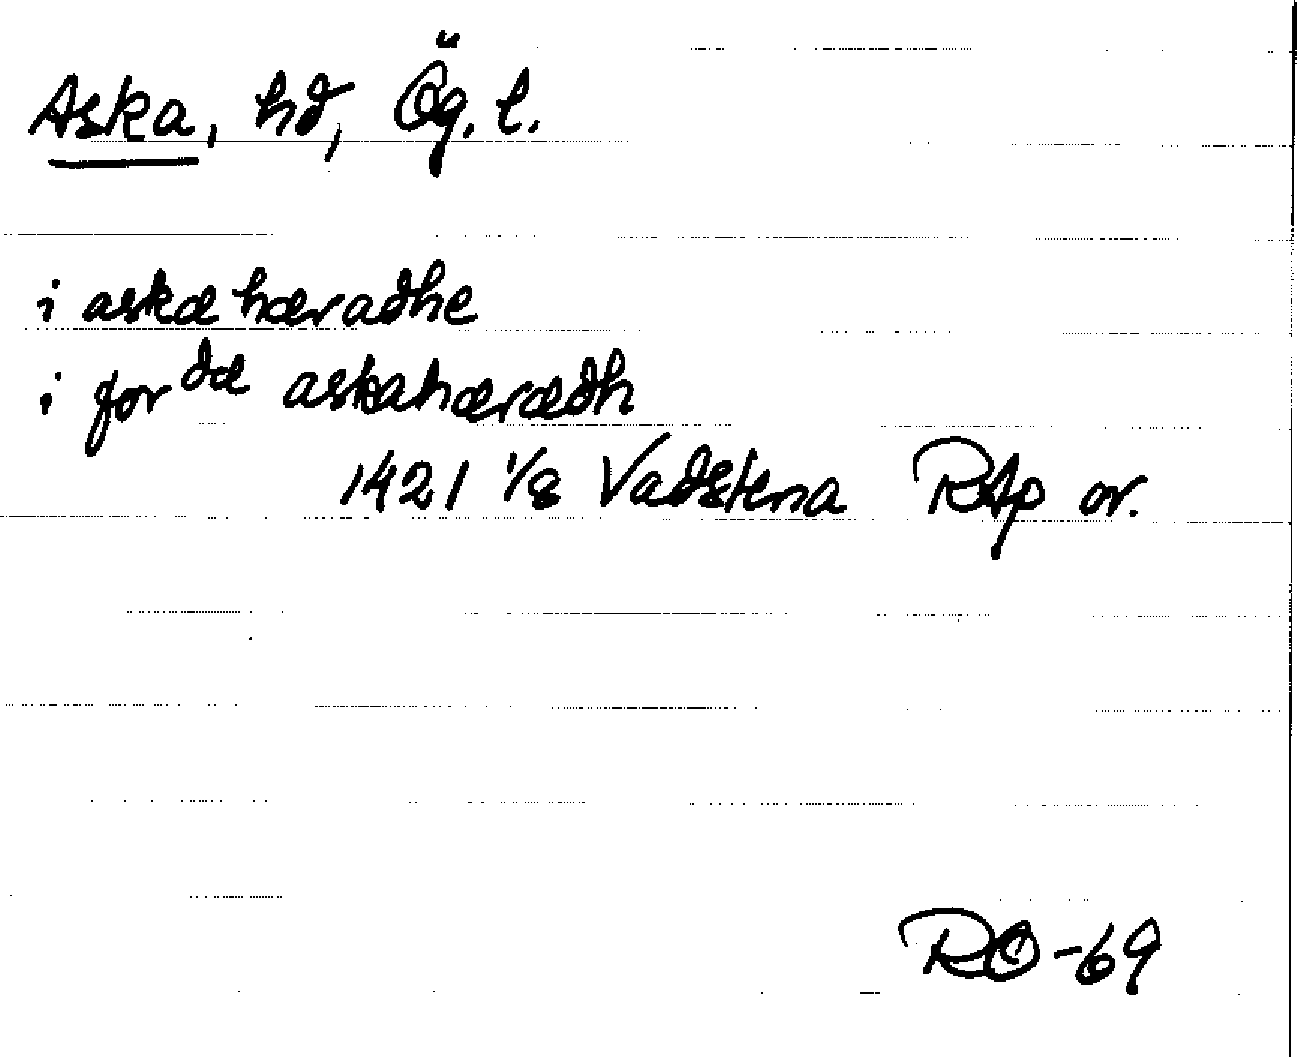 Aska, hd, Ög. l.
i askæ hæradhe
i for dæ askahærædh
1421 1/8 Vadstena RAp or.
RO-69